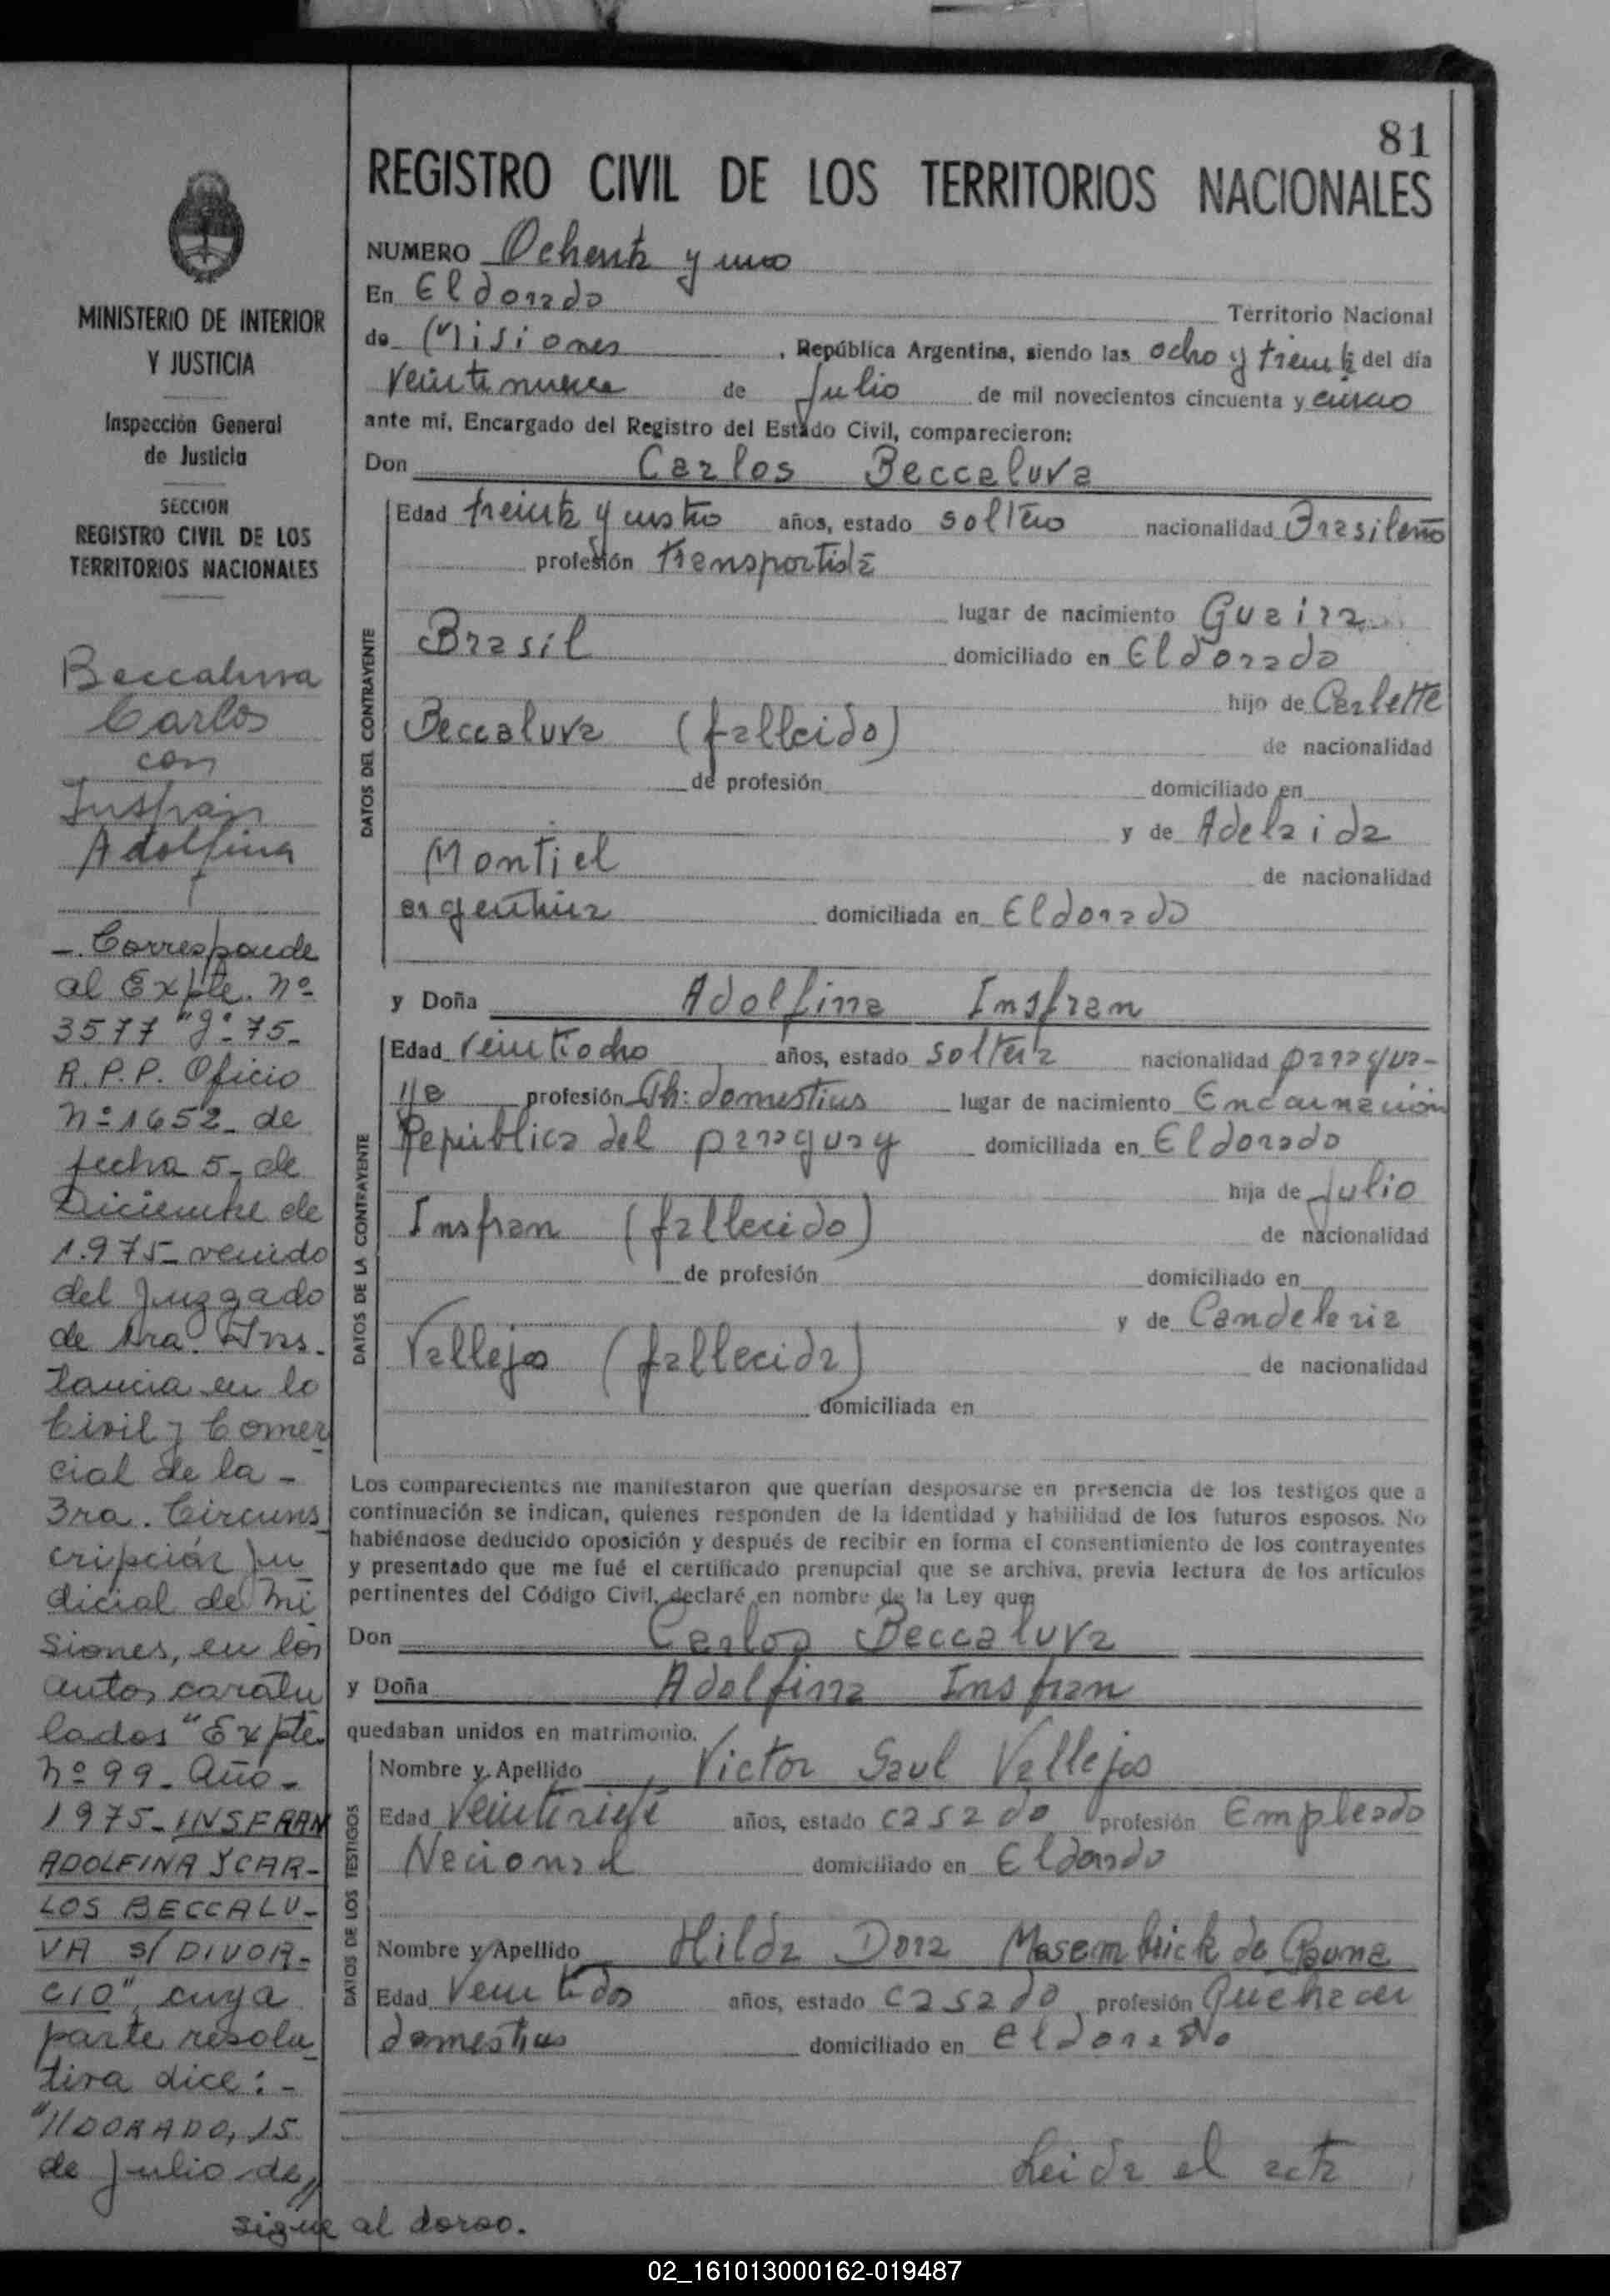 81
REGISTRO CIVIL DE LOS TERRITORIOS NACIONALES
NUMERO Ochenta y uno
En Eldorado Territorio Nacional
de Misiones, República Argentina, siendo las ocho y treinta del día
veintinueve de Julio de mil novecientos cincuenta y cinco
ante mí, Encargado del Registro del Estado Civil, comparecieron:
Don Carlos Beccaluva
DATOS DEL CONTRAYENTE
Edad treinta y cuatro años, estado soltero nacionalidad Brasileño
profesión transportista
lugar de nacimiento Guaira
Brasil domiciliado en Eldorado
hijo de Carlette
Beccaluva (fallecido) de nacionalidad
de profesión domiciliado en
y de Adelaida
Montiel de nacionalidad
argentina domiciliada en Eldorado
y Doña Adolfina Insfran
DATOS DE LA CONTRAYENTE
Edad veintiocho años, estado soltera nacionalidad paragua-
ya profesión Qh: domesticos lugar de nacimiento Encarnación
República del paraguay domiciliada en Eldorado
hija de Julio
Insfran (fallecido) de nacionalidad
de profesión domiciliado en
y de Candelaria
Vallejos (fallecida) de nacionalidad
domiciliada en
Los comparecientes me manifestaron que querían desposarse en presencia de los testigos que a
continuación se indican, quienes responden de la identidad y habilidad de los futuros esposos. No
habiéndose deducido oposición y después de recibir en forma el consentimiento de los contrayentes
y presentado que me fué el certificado prenupcial que se archiva, previa lectura de los artículos
pertinentes del Código Civil, declaré en nombre de la Ley que:
Don Carlos Beccaluva
y Doña Adolfina Insfran
quedaban unidos en matrimonio.
DATOS DE LOS TESTIGOS
Nombre y Apellido Victor Saul Vallejos
Edad veintisiete años, estado casado profesión Empleado
Nacional domiciliado en Eldorado
Nombre y Apellido Hilda Dora de
Edad veintidos años, estado casado profesión Quehacer
domesticos domiciliado en eldorado
Leida el acta
MINISTERIO DE INTERIOR
Y JUSTICIA
Inspección General
de Justicia
SECCION
REGISTRO CIVIL DE LOS
TERRITORIOS NACIONALES
Beccaluva
Carlos
con
Insfrán
Adolfina
-. Corresponde
al Expte. nº
3577 "J". 75-
R.P.P. Oficio
nº 1652- de
fecha 5- de
Diciembre de
1.975- venido
del Juzgado
de 1ra. Ins-
tancia en lo
Civil y Comer
cial de la -
3ra. Circuns
cripción Ju
dicial de Mi
siones, en los
autos caratu
lados "Expte.
nº 99- Año-
1975- INSFRAN
ADOLFINA Y CAR-
LOS BECCALU-
VA s/ DIVOR-
CIO", cuya
parte resolu
tiva dice: -
"//DORADO, 15
de Julio de//
sigue al dorso.
02_161013000162-019487